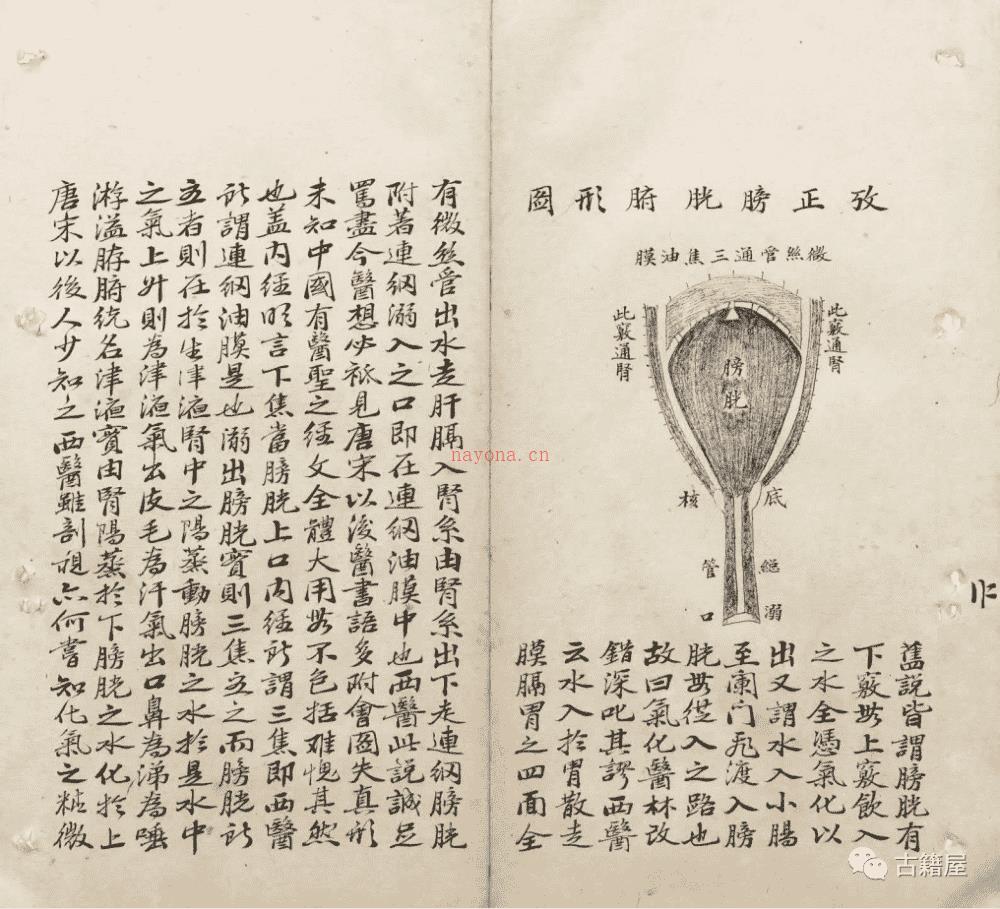 圖形腑胱膀正攷
膜油焦三通管絲微
此竅通腎
此竅通腎
膀胱
核
底
管
總
口
溺
舊說皆謂膀胱有
下竅無上竅飲入
之水全憑氣化以
出又謂水入小腸
至闌門飛渡入膀
胱無從入之路也
故曰氣化醫林改
錯深叱其謬西醫
云水入於胃散走
膜膈胃之四面全
有微絲管出水走肝膈入腎系由腎系出下走連網膀胱
附着連網溺入之口即在連網油膜中也西醫此說誠足
罵盡今醫想必袛見唐宋以後醫書語多附會圖失真形
未知中國有醫聖之經文全體大用無不包括难愧其煞
也盖内經明言下焦當膀胱上口内經所謂三焦即西醫
所謂連網油膜是也溺出膀胱實則三焦主之而膀胱所
主者則在於生津液腎中之陽蒸動膀胱之水於是水中
之氣上升則為津液氣出皮毛為汗氣出口鼻為涕為唾
游溢臟腑統名津液實由腎陽蒸於下膀胱之水化於上
唐宋以後人少知之西醫雖剖視亦何嘗知化氣之精微
nayona.cn
古籍屋